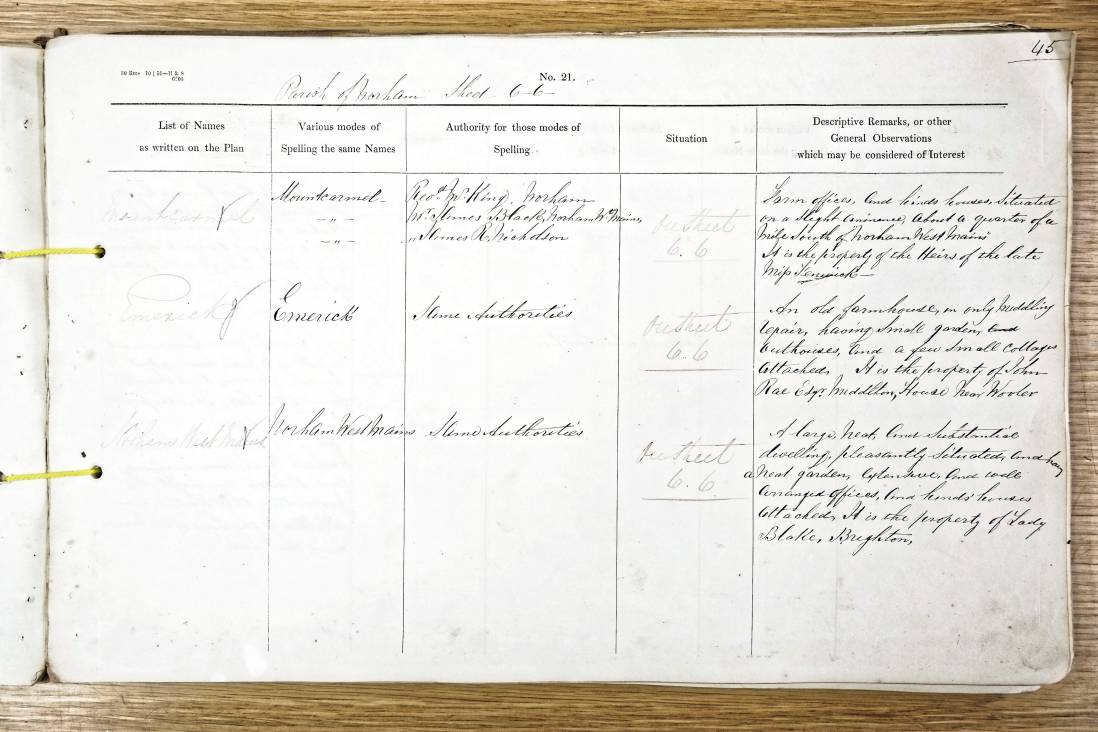 45
No. 21.
Parish of Norham Shed 6-6
List of Names
as written on the Plan
Various modes of
Spelling the same Names
Authority for those modes of
Spelling.
Situation
Descriptive Remarks, or other
General Observations
which may be considered of Interest
Mountcarmel
Mountcarmel
Revd. Mr. King, Norham
Mr. James Black, Norham Wt. Mains,
" James R. Nicholson
On Sheet
6.6
Farm offices, and hinds houses, Situated
on a slight eminence, about a quarter of a
Mile South of Norham West Mains
It is the property of the Heirs of the late
Miss Fenwick
Emerick
Emerick
Same Authorities
On Sheet
6.6
An old farmhouse, in only middling
repair, having small garden, and
Outhouses, and a few small cottages
attached. It is the property of John
Rae Esqr. Middleton, House Near Wooler
Norham West Mains
Norham West Mains
Same Authorities
On Sheet
6.6
A large, Neat, and Substantial
dwelling, pleasantly Situated, and havg
a Neat garden, extensive and well
arranged offices, and hinds' houses
attached. It is the property of Lady
Blake, Brighton,